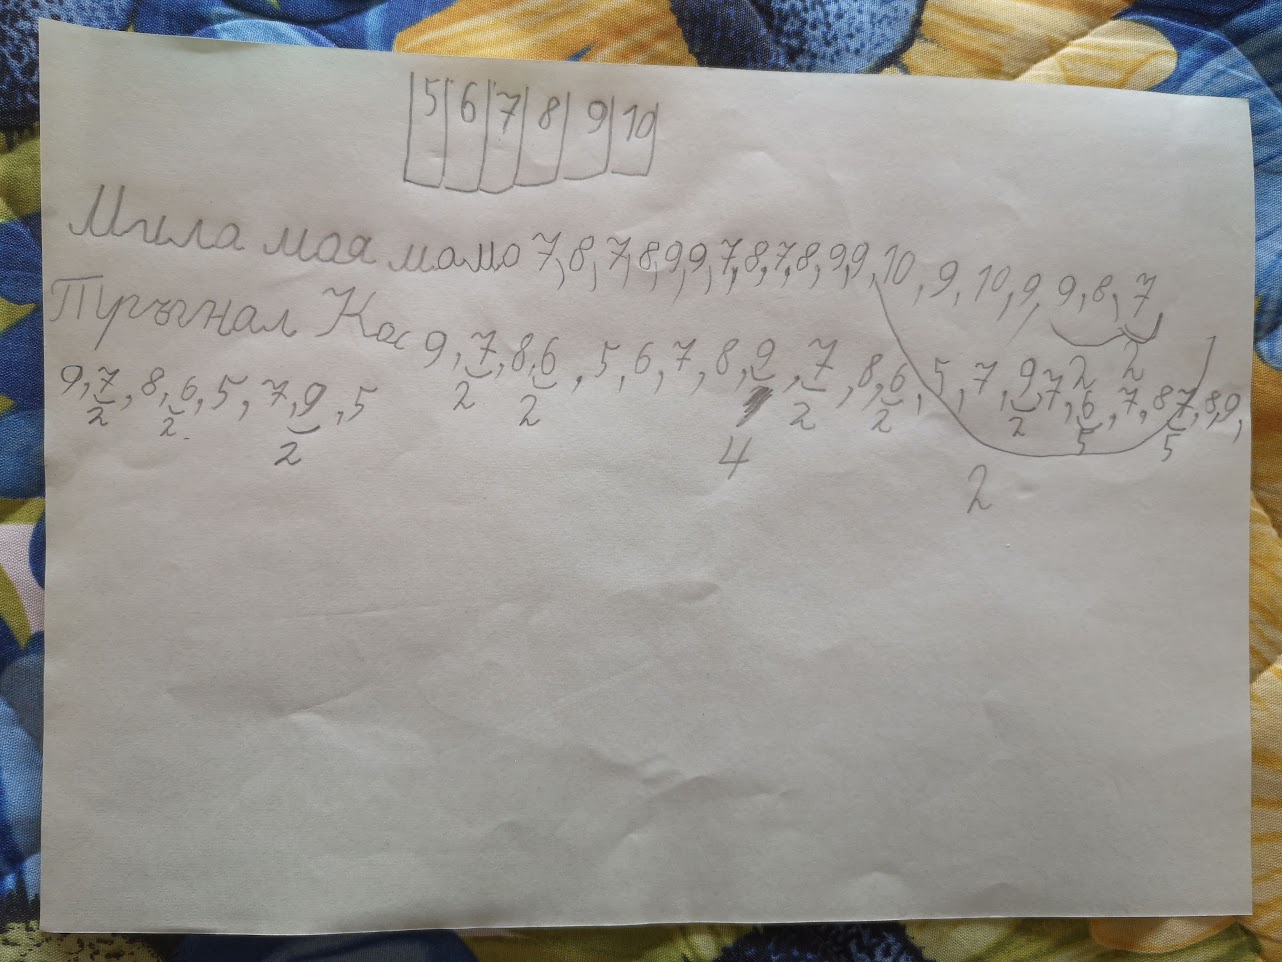 5 6 7 8 9 10
Мила моя мамо 7, 8, 7, 8, 9, 9, 7, 8, 7, 8, 9, 9, 10, 9, 10, 9, 9, 8, 7
2 2
Тръгнал Кос 9, 7, 8, 6, 5, 6, 7, 8, 9, 7, 8, 6, 5, 7, 9, 7, 6, 7, 8, 7, 8, 9,
2 2 4 2 2 2 5 5
2
9, 7, 8, 6, 5, 7, 9, 5
2 2 2